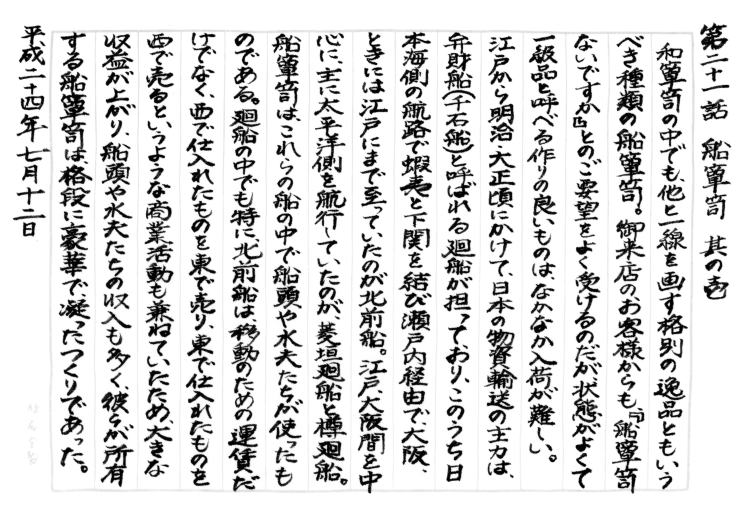 第二十一話　船簞笥　其の壱
和簞笥の中でも、他と一線を画す格別の逸品ともいう
べき種類の船簞笥。御来店のお客様からも、『船簞笥
ないですか』とのご要望をよく受けるのだが状態がよくて
一級品と呼べる作りの良いものは、なかなか入荷が難しい。
江戸から明治・大正頃にかけて、日本の物資輸送の主力は、
弁財船(千石船)と呼ばれる廻船が担っており、このうち日
本海側の航路で蝦夷と下関を結び瀬戸内経由で、大阪、
ときには江戸にまで至っていたのが北前船。江戸、大阪間を中
心に、主に太平洋側を航行していたのが、菱垣廻船と樽廻船。
船簞笥は、これらの船の中で船頭や水夫たちが使ったも
のである。廻船の中でも特に北前船は、移動のための運賃だ
けでなく、西で仕入れたものを東で売り、東で仕入れたものを
西で売るというような商業活動も兼ねていたため、大きな
収益が上がり、船頭や水夫たちの収入も多く、彼らが所有
する船簞笥は、格段に豪華で、凝ったつくりであった。
平成二十四年七月十二日